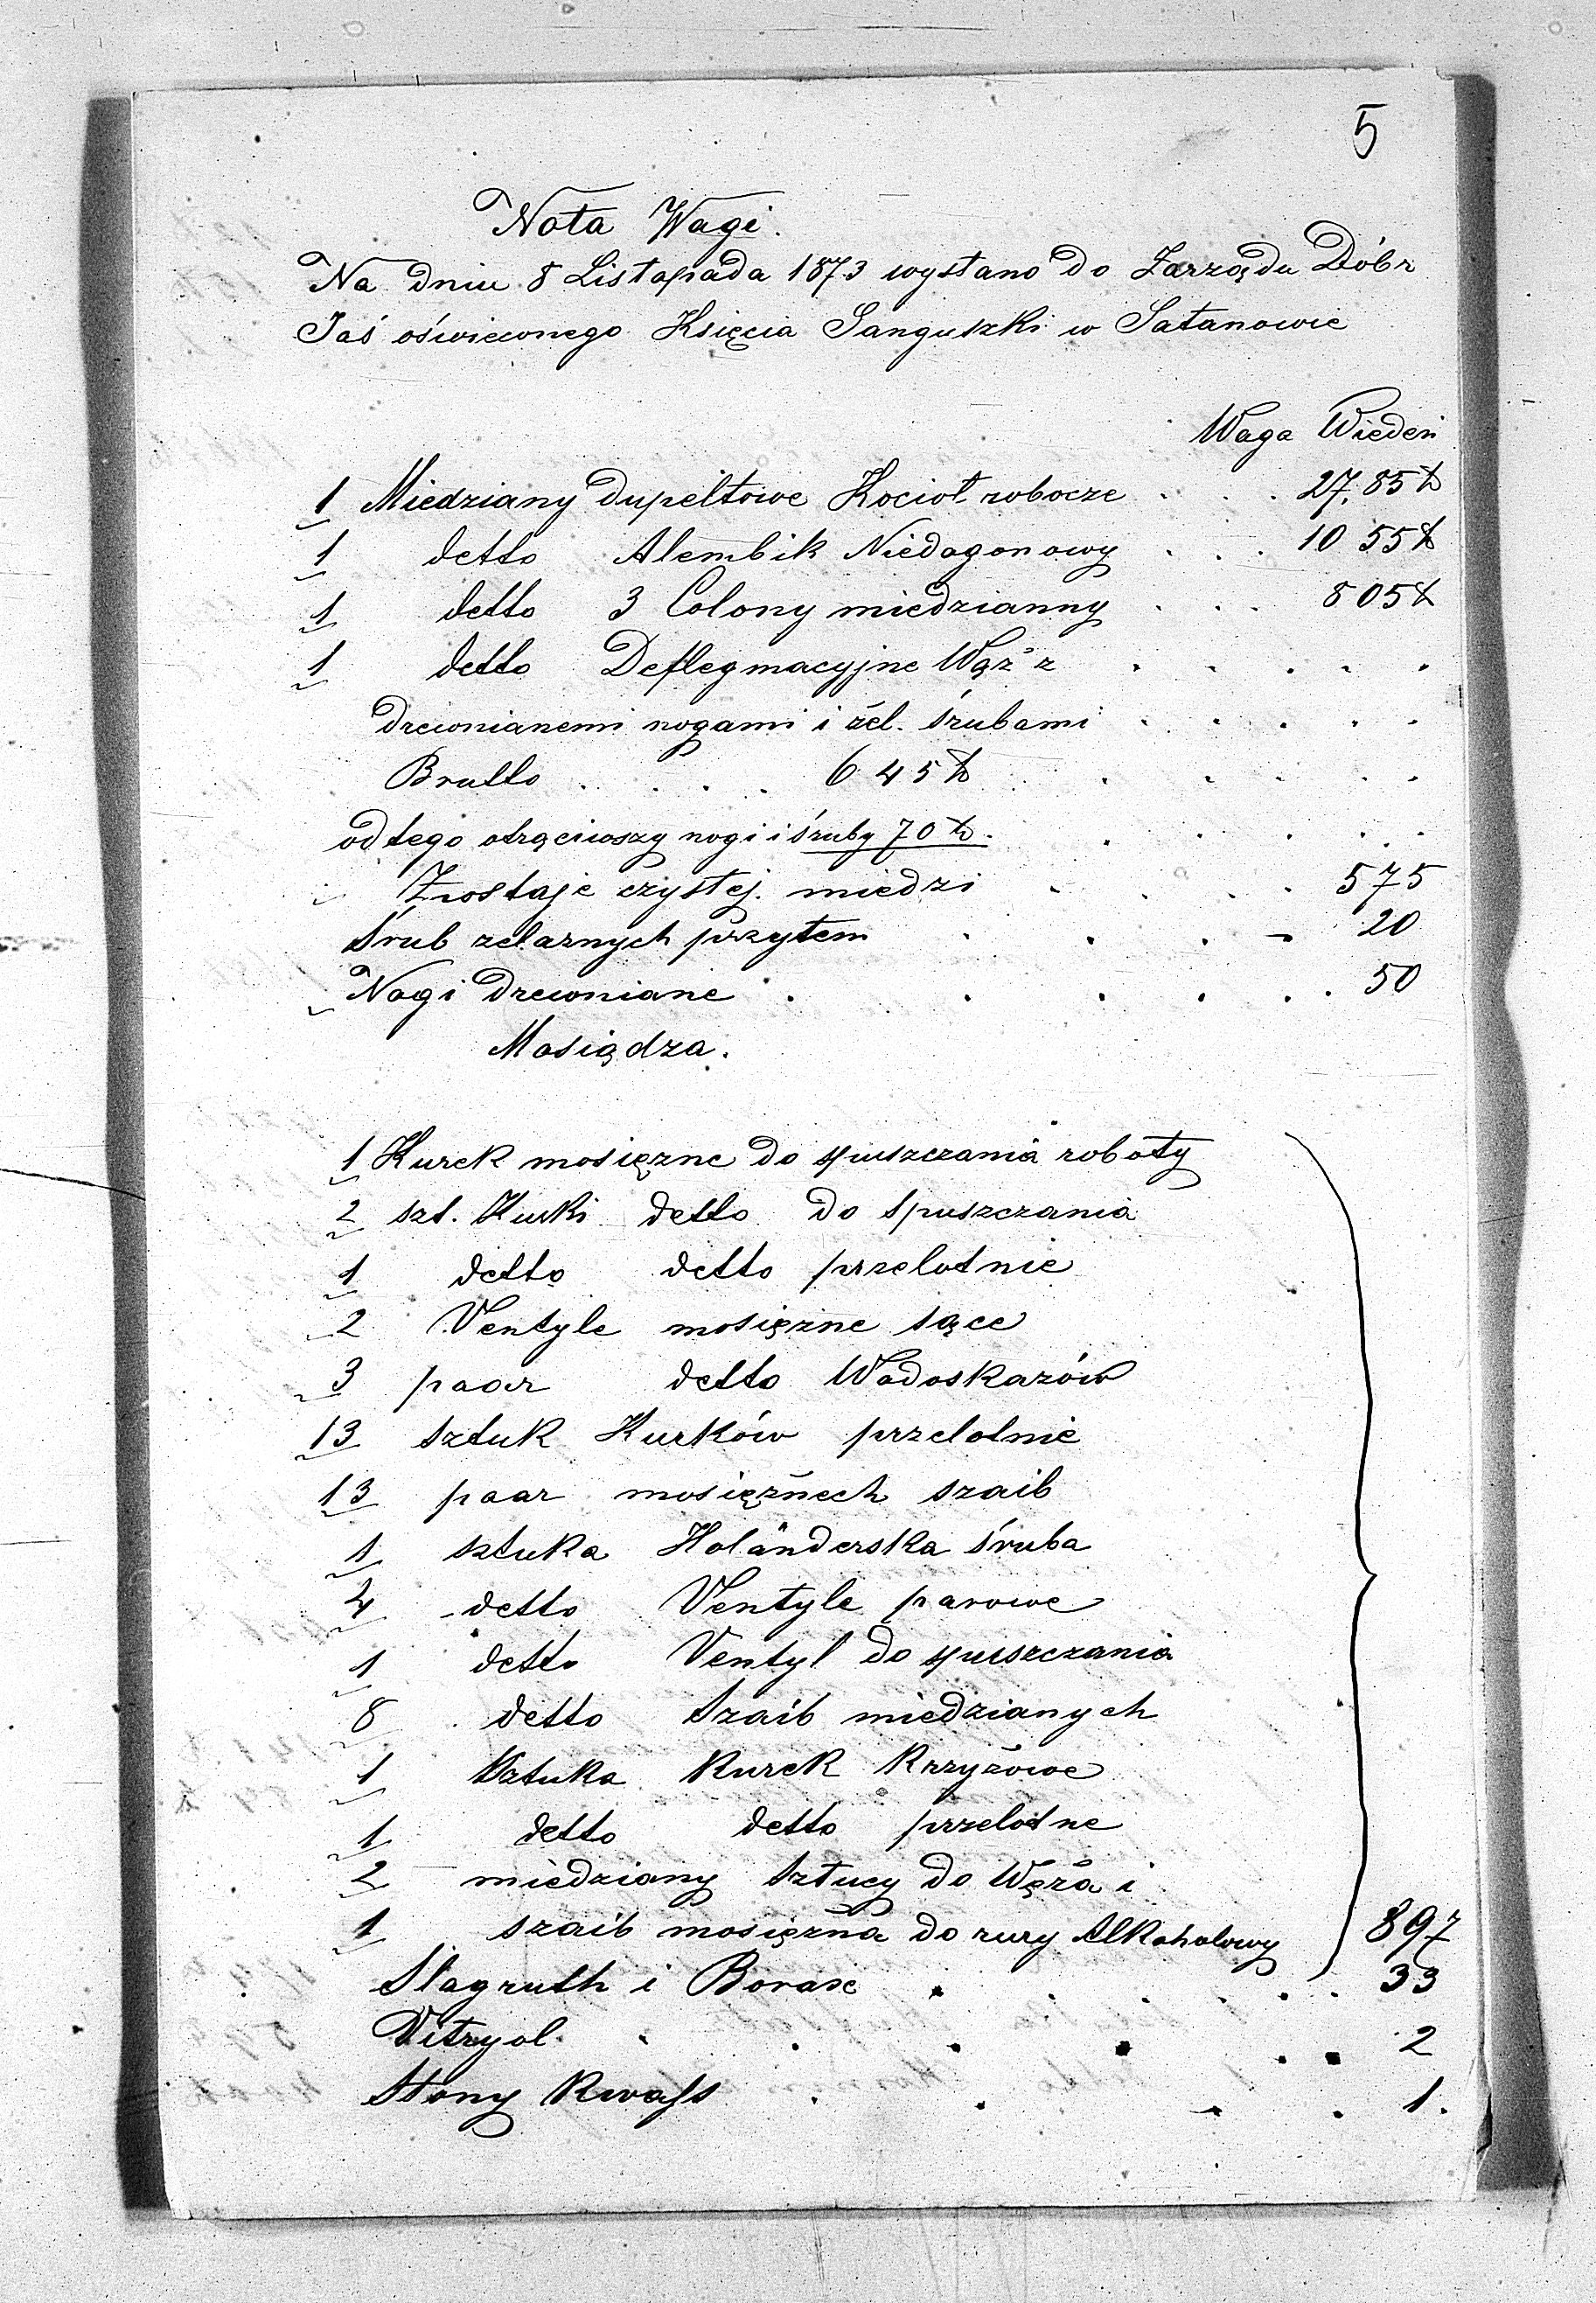 5
Nota Wagi.
Na dniu 8 Listapada 1873 wystano do Zarządu Dóbr
Jaś oświeconego Księcia Sanguszki w Satanowie
Waga Wiedeń
1 Miedziany dupeltowe Kociot robocze 27,85 ℔
1 detto Alembik Niedogonowy 10 55 ℔
1 detto 3 Colony miedzianny 8 05 ℔
1 detto Deflegmacyjne Wąż z
drewnianemi nogami i żel. śrubami
Brutto 6 45 ℔
od tego otrąciwszy nogi i śruby 70 ℔.
Zwostaje czystej miedzi 575
Śrub zelaznych przytem 20
Nogi drewniane 50
Mosiądza.
1 Kurek mosiężne do spuszczania roboty
2 szt. Kurki detto do spuszczania
1 detto detto przelotnie
2 Ventyle mosiężne sące
3 paar detto Wodoskazów
13 sztuk Kurków przelotnie
13 paar mosiężnech szaib
1 sztuka Holänderska śruba
4 detto Ventyle parowe
1 detto Ventyl do spuszczania
8 detto Szaib miedzianych
1 Sztuka Kurek Krzyżowe
1 detto detto przelotne
2 miedziany Sztucy do Węża i
1 szaib mosiężna do rury Alkoholowy 897
Slagruth i Borax 33
Vitryol 2
Stony Kwass 1.